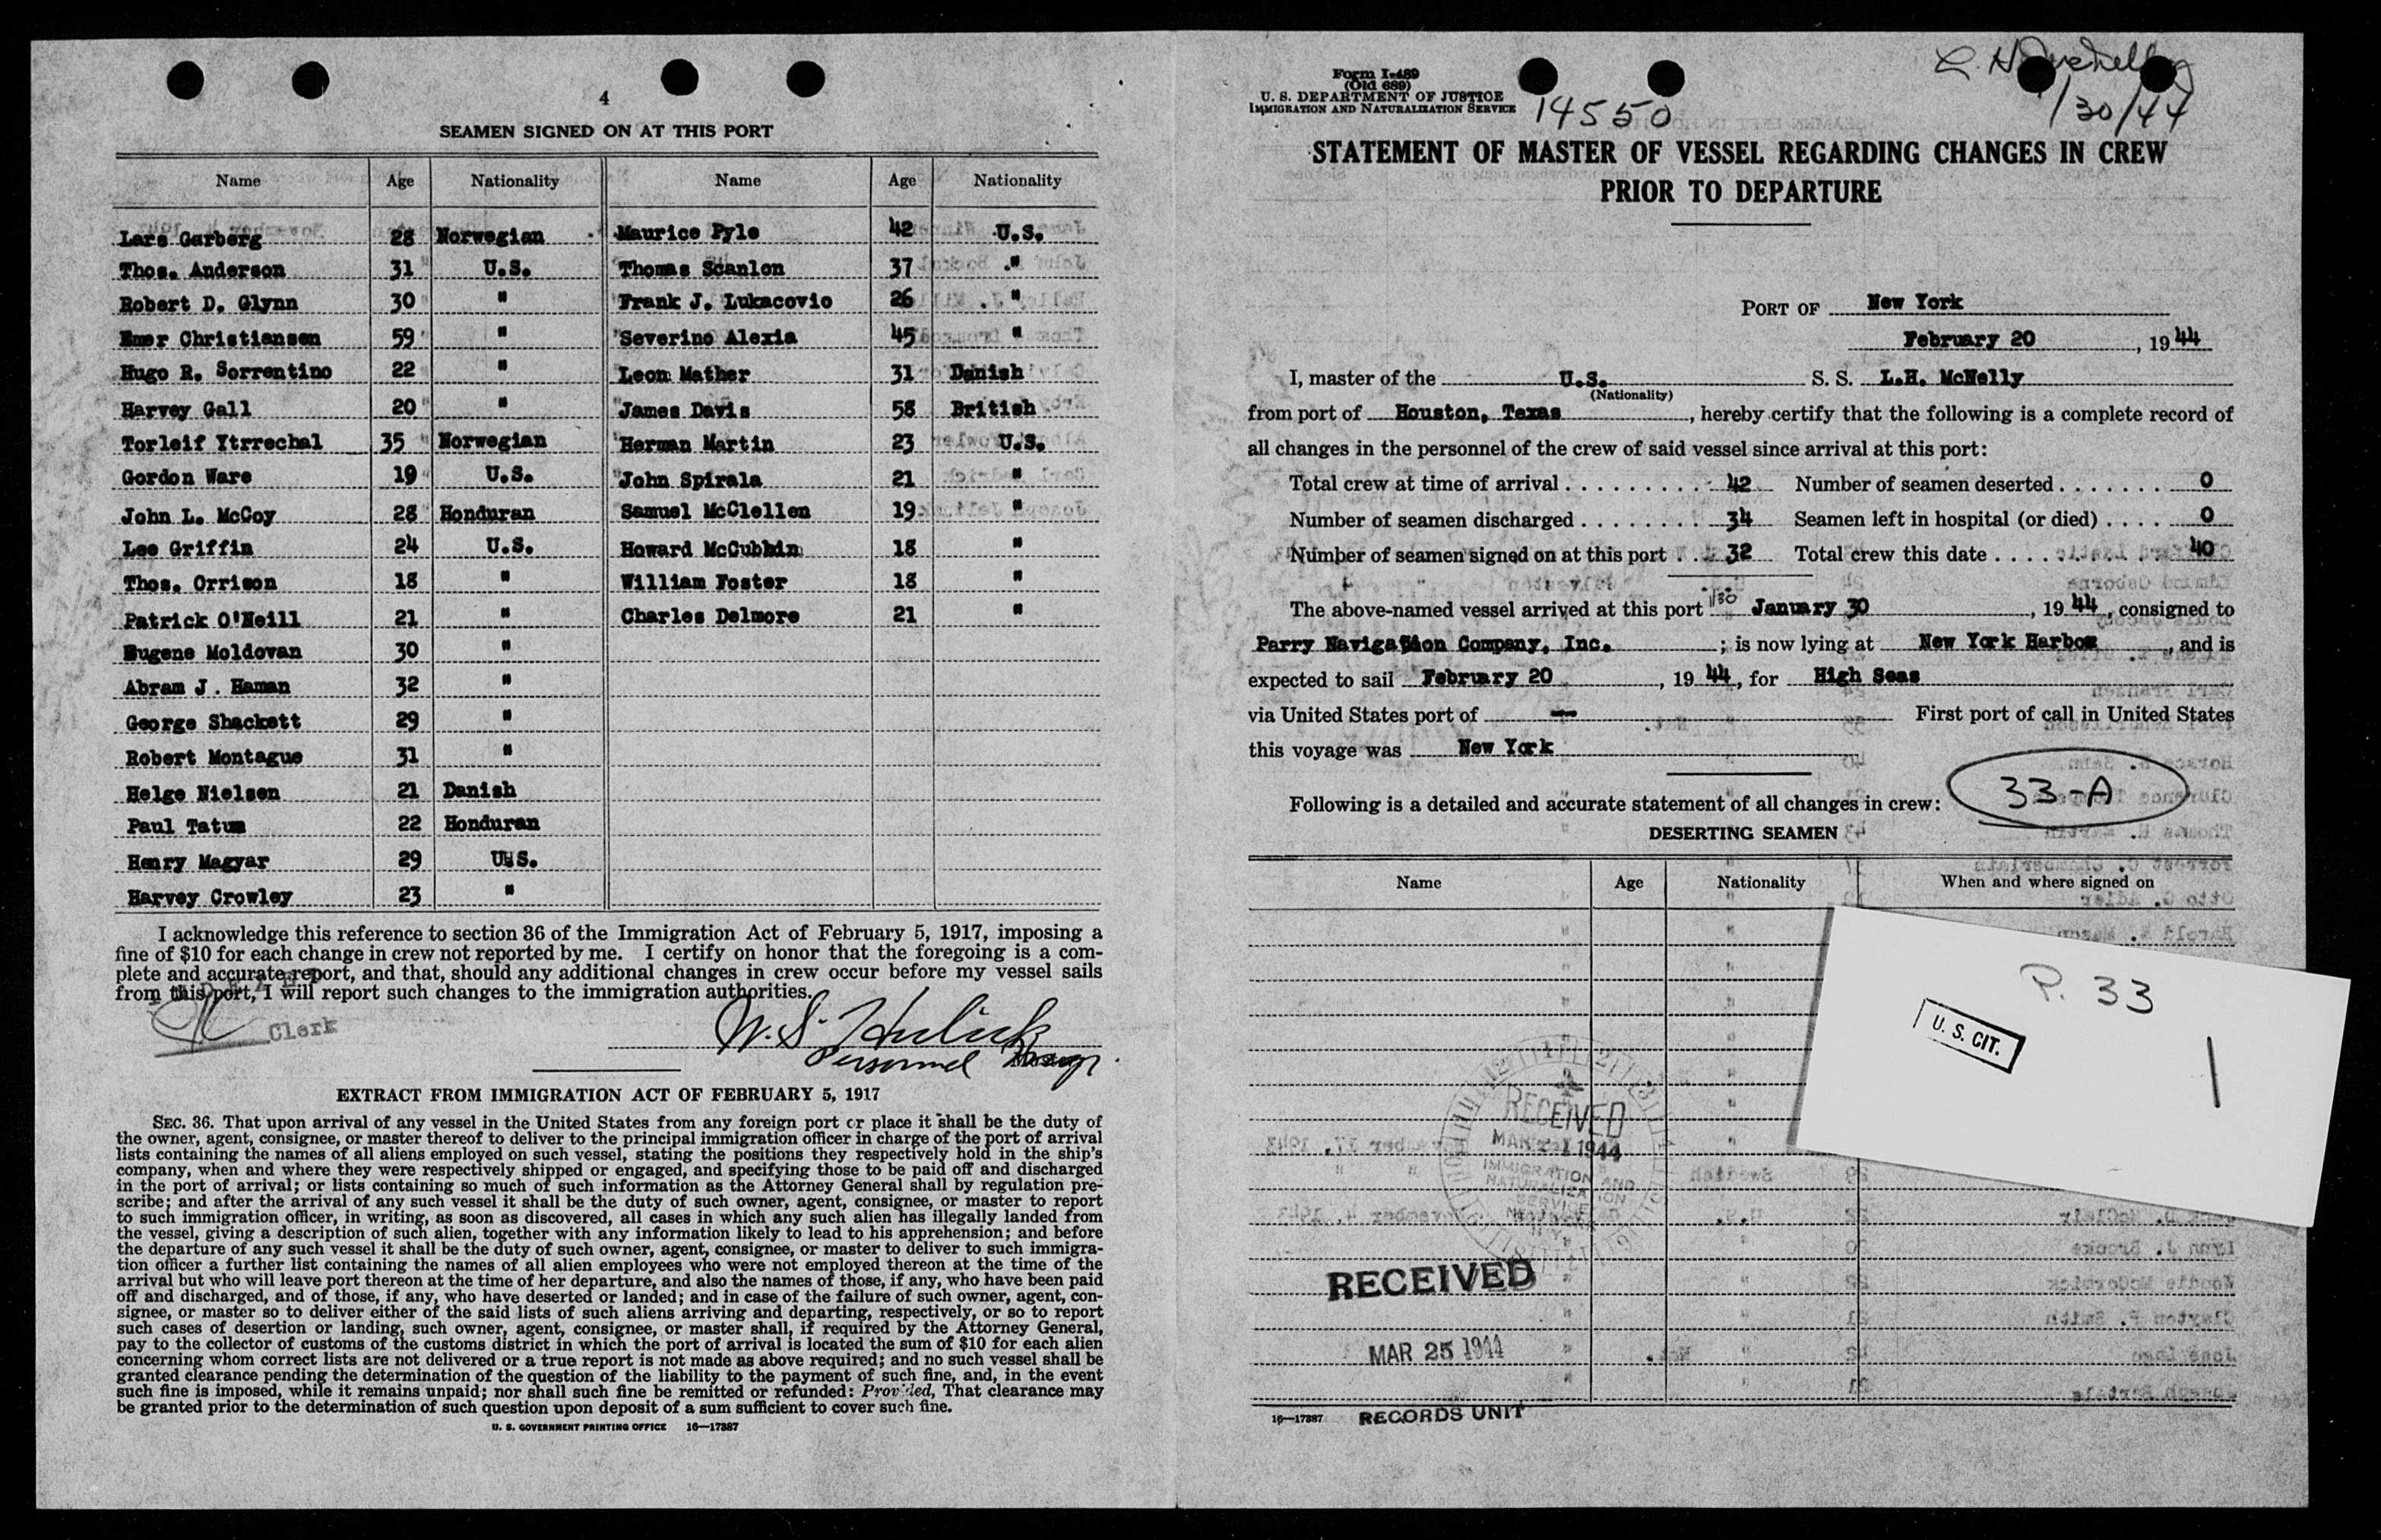 4
SEAMEN SIGNED ON AT THIS PORT
Name Age Nationality Name Age Nationality
Lars Garberg 28 Norwegian Maurice Pyle 42 U.S.
Thos. Anderson 31 U.S. Thomas Scanlon 37 "
Robert D. Glynn 30 " Frank J. Lukacovic 26 "
Emer Christiansen 59 " Severino Alexia 45 "
Hugo R. Sorrentino 22 " Leon Mather 31 Danish
Harvey Gall 20 " James Davis 58 British
Torleif Ytrrechal 35 Norwegian Herman Martin 23 U.S.
Gordon Ware 19 U.S. John Spirala 21 "
John L. McCoy 28 Honduran Samuel McClellen 19 "
Lee Griffin 24 U.S. Howard McCubbin 18 "
Thos. Orrison 18 " William Foster 18 "
Patrick O'Neill 21 " Charles Delmore 21 "
Eugene Moldovan 30 "
Abram J. Haman 32 "
George Shackett 29 "
Robert Montague 31 "
Helge Nielsen 21 Danish
Paul Tatum 22 Honduran
Henry Magyar 29 U.S.
Harvey Crowley 23 "
I acknowledge this reference to section 36 of the Immigration Act of February 5, 1917, imposing a
fine of $10 for each change in crew not reported by me. I certify on honor that the foregoing is a com-
plete and accurate report, and that, should any additional changes in crew occur before my vessel sails
from this port, I will report such changes to the immigration authorities.
Clerk
W. S. Hulick
Personnel Mangr.
EXTRACT FROM IMMIGRATION ACT OF FEBRUARY 5, 1917
SEC. 36. That upon arrival of any vessel in the United States from any foreign port or place it shall be the duty of
the owner, agent, consignee, or master thereof to deliver to the principal immigration officer in charge of the port of arrival
lists containing the names of all aliens employed on such vessel, stating the positions they respectively hold in the ship's
company, when and where they were respectively shipped or engaged, and specifying those to be paid off and discharged
in the port of arrival; or lists containing so much of such information as the Attorney General shall by regulation pre-
scribe; and after the arrival of any such vessel it shall be the duty of such owner, agent, consignee, or master to report
to such immigration officer, in writing, as soon as discovered, all cases in which any such alien has illegally landed from
the vessel, giving a description of such alien, together with any information likely to lead to his apprehension; and before
the departure of any such vessel it shall be the duty of such owner, agent, consignee, or master to deliver to such immigra-
tion officer a further list containing the names of all alien employees who were not employed thereon at the time of the
arrival but who will leave port thereon at the time of her departure, and also the names of those, if any, who have been paid
off and discharged, and of those, if any, who have deserted or landed; and in case of the failure of such owner, agent, con-
signee, or master so to deliver either of the said lists of such aliens arriving and departing, respectively, or so to report
such cases of desertion or landing, such owner, agent, consignee, or master shall, if required by the Attorney General,
pay to the collector of customs of the customs district in which the port of arrival is located the sum of $10 for each alien
concerning whom correct lists are not delivered or a true report is not made as above required; and no such vessel shall be
granted clearance pending the determination of the question of the liability to the payment of such fine, and, in the event
such fine is imposed, while it remains unpaid; nor shall such fine be remitted or refunded: Provided, That clearance may
be granted prior to the determination of such question upon deposit of a sum sufficient to cover such fine.
U. S. GOVERNMENT PRINTING OFFICE 16—17887
Form I-489
(Old 689)
U. S. DEPARTMENT OF JUSTICE
IMMIGRATION AND NATURALIZATION SERVICE
14550
1/30/44
STATEMENT OF MASTER OF VESSEL REGARDING CHANGES IN CREW
PRIOR TO DEPARTURE
PORT OF New York
February 20, 1944
I, master of the U.S. S. S. L.H. McNelly
(Nationality)
from port of Houston, Texas, hereby certify that the following is a complete record of
all changes in the personnel of the crew of said vessel since arrival at this port:
Total crew at time of arrival . . . . . . . . . . 42 Number of seamen deserted . . . . . . . 0
Number of seamen discharged . . . . . . . . 34 Seamen left in hospital (or died) . . . . 0
Number of seamen signed on at this port . . 32 Total crew this date . . . . 40
The above-named vessel arrived at this port 1/30 January 30, 1944, consigned to
Parry Navigation Company, Inc. ; is now lying at New York Harbor, and is
expected to sail February 20, 1944, for High Seas
via United States port of — First port of call in United States
this voyage was New York
33-A
Following is a detailed and accurate statement of all changes in crew:
DESERTING SEAMEN
Name Age Nationality When and where signed on
P. 33
U. S. CIT.
RECEIVED
1944
IMMIGRATION AND
NATURALIZATION
SERVICE
RECEIVED
MAR 25 1944
16—17887 RECORDS UNIT